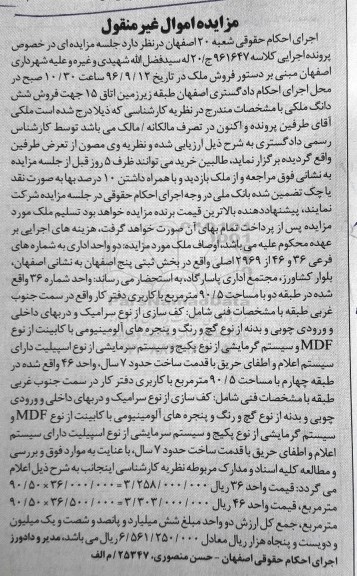 مزایده اموال غیر منقول
اجرای احکام حقوقی شعبه ۲۰ اصفهان درنظر دارد جلسه مزایده ای در خصوص
پرونده اجرایی کلاسه ۹۶۱۶۴۷ج/۲۰ له سیدفضل الله شهیدی و غیره و علیه شهرداری
اصفهان مبنی بر دستور فروش ملک در تاریخ ۹۶/۹/۱۲ ساعت ۱۰/۳۰ صبح در
محل اجرای احکام دادگستری اصفهان طبقه زیرزمین اتاق ۱۵ جهت فروش شش
دانگ ملکی با مشخصات مندرج در نظریه کارشناسی که ذیلا درج شده است ملکی
آقای طرفین پرونده و اکنون در تصرف مالکانه / مالک می باشد توسط کارشناس
رسمی دادگستری به شرح ذیل ارزیابی شده و نظریه وی مصون از تعرض طرفین
واقع گردیده برگزار نماید، طالبین خرید می توانند ظرف ۵ روز قبل از جلسه مزایده
به نشانی فوق مراجعه و از ملک بازدید و با همراه داشتن ۱۰ درصد بها به صورت نقد
یا چک تضمین شده بانک ملی در وجه اجرای احکام حقوقی در جلسه مزایده شرکت
نمایند، پیشنهاددهنده بالاترین قیمت برنده مزایده خواهد بود تسلیم ملک مورد
مزایده پس از پرداخت تمام بهای آن صورت خواهد گرفت، هزینه های اجرایی بر
عهده محکوم علیه می باشد، اوصاف ملک مورد مزایده: دو واحد اداری به شماره های
فرعی ۳۶ و ۴۶ از ۲۹۶۹ اصلی واقع در بخش ثبتی پنج اصفهان به نشانی اصفهان،
بلوار کشاورز، مجتمع اداری پاسارگاد، به استحضار می رساند: واحد شماره ۳۶ واقع
شده در طبقه دو با مساحت ۹۰/۵ مترمربع با کاربری دفتر کار واقع در سمت جنوب
غربی طبقه با مشخصات فنی شامل: کف سازی از نوع سرامیک و دربهای داخلی
و ورودی چوبی و بدنه از نوع گچ و رنگ و پنجره های آلومینیومی با کابینت از نوع
MDF و سیستم گرمایشی از نوع پکیج و سیستم سرمایشی از نوع اسپیلیت دارای
سیستم اعلام و اطفای حریق با قدمت ساخت حدود ۷ سال، واحد ۴۶ واقع شده در
طبقه چهارم با مساحت ۹۰/۵ مترمربع با کاربری دفتر کار در سمت جنوب غربی
طبقه با مشخصات فنی شامل: کف سازی از نوع سرامیک و دربهای داخلی و ورودی
چوبی و بدنه از نوع گچ و رنگ و پنجره های آلومینیومی با کابینت از نوع MDF و
سیستم گرمایشی از نوع پکیج و سیستم سرمایشی از نوع اسپیلیت دارای سیستم
اعلام و اطفای حریق با قدمت ساخت حدود ۷ سال، با عنایت به موارد فوق و بررسی
و مطالعه کلیه اسناد و مدارک مربوطه نظریه کارشناسی اینجانب به شرح ذیل اعلام
می گردد: قیمت واحد ۳۶ ریال ۳/۲۵۸/۰۰۰/۰۰۰=۳۶/۰۰۰/۰۰۰×۹۰/۵۰
مترمربع، قیمت واحد ۴۶ ریال ۳/۳۰۳/۰۰۰/۰۰۰=۳۶/۵۰۰/۰۰۰×۹۰/۵۰
مترمربع، جمع کل ارزش دو واحد مبلغ شش میلیارد و پانصد و شصت و یک میلیون
و دویست و پنجاه هزار ریال معادل ۶/۵۶۱/۲۵۰/۰۰۰ ریال می باشد، مدیر و دادورز
اجرای احکام حقوقی اصفهان - حسن منصوری، ۲۵۳۴۷/م الف